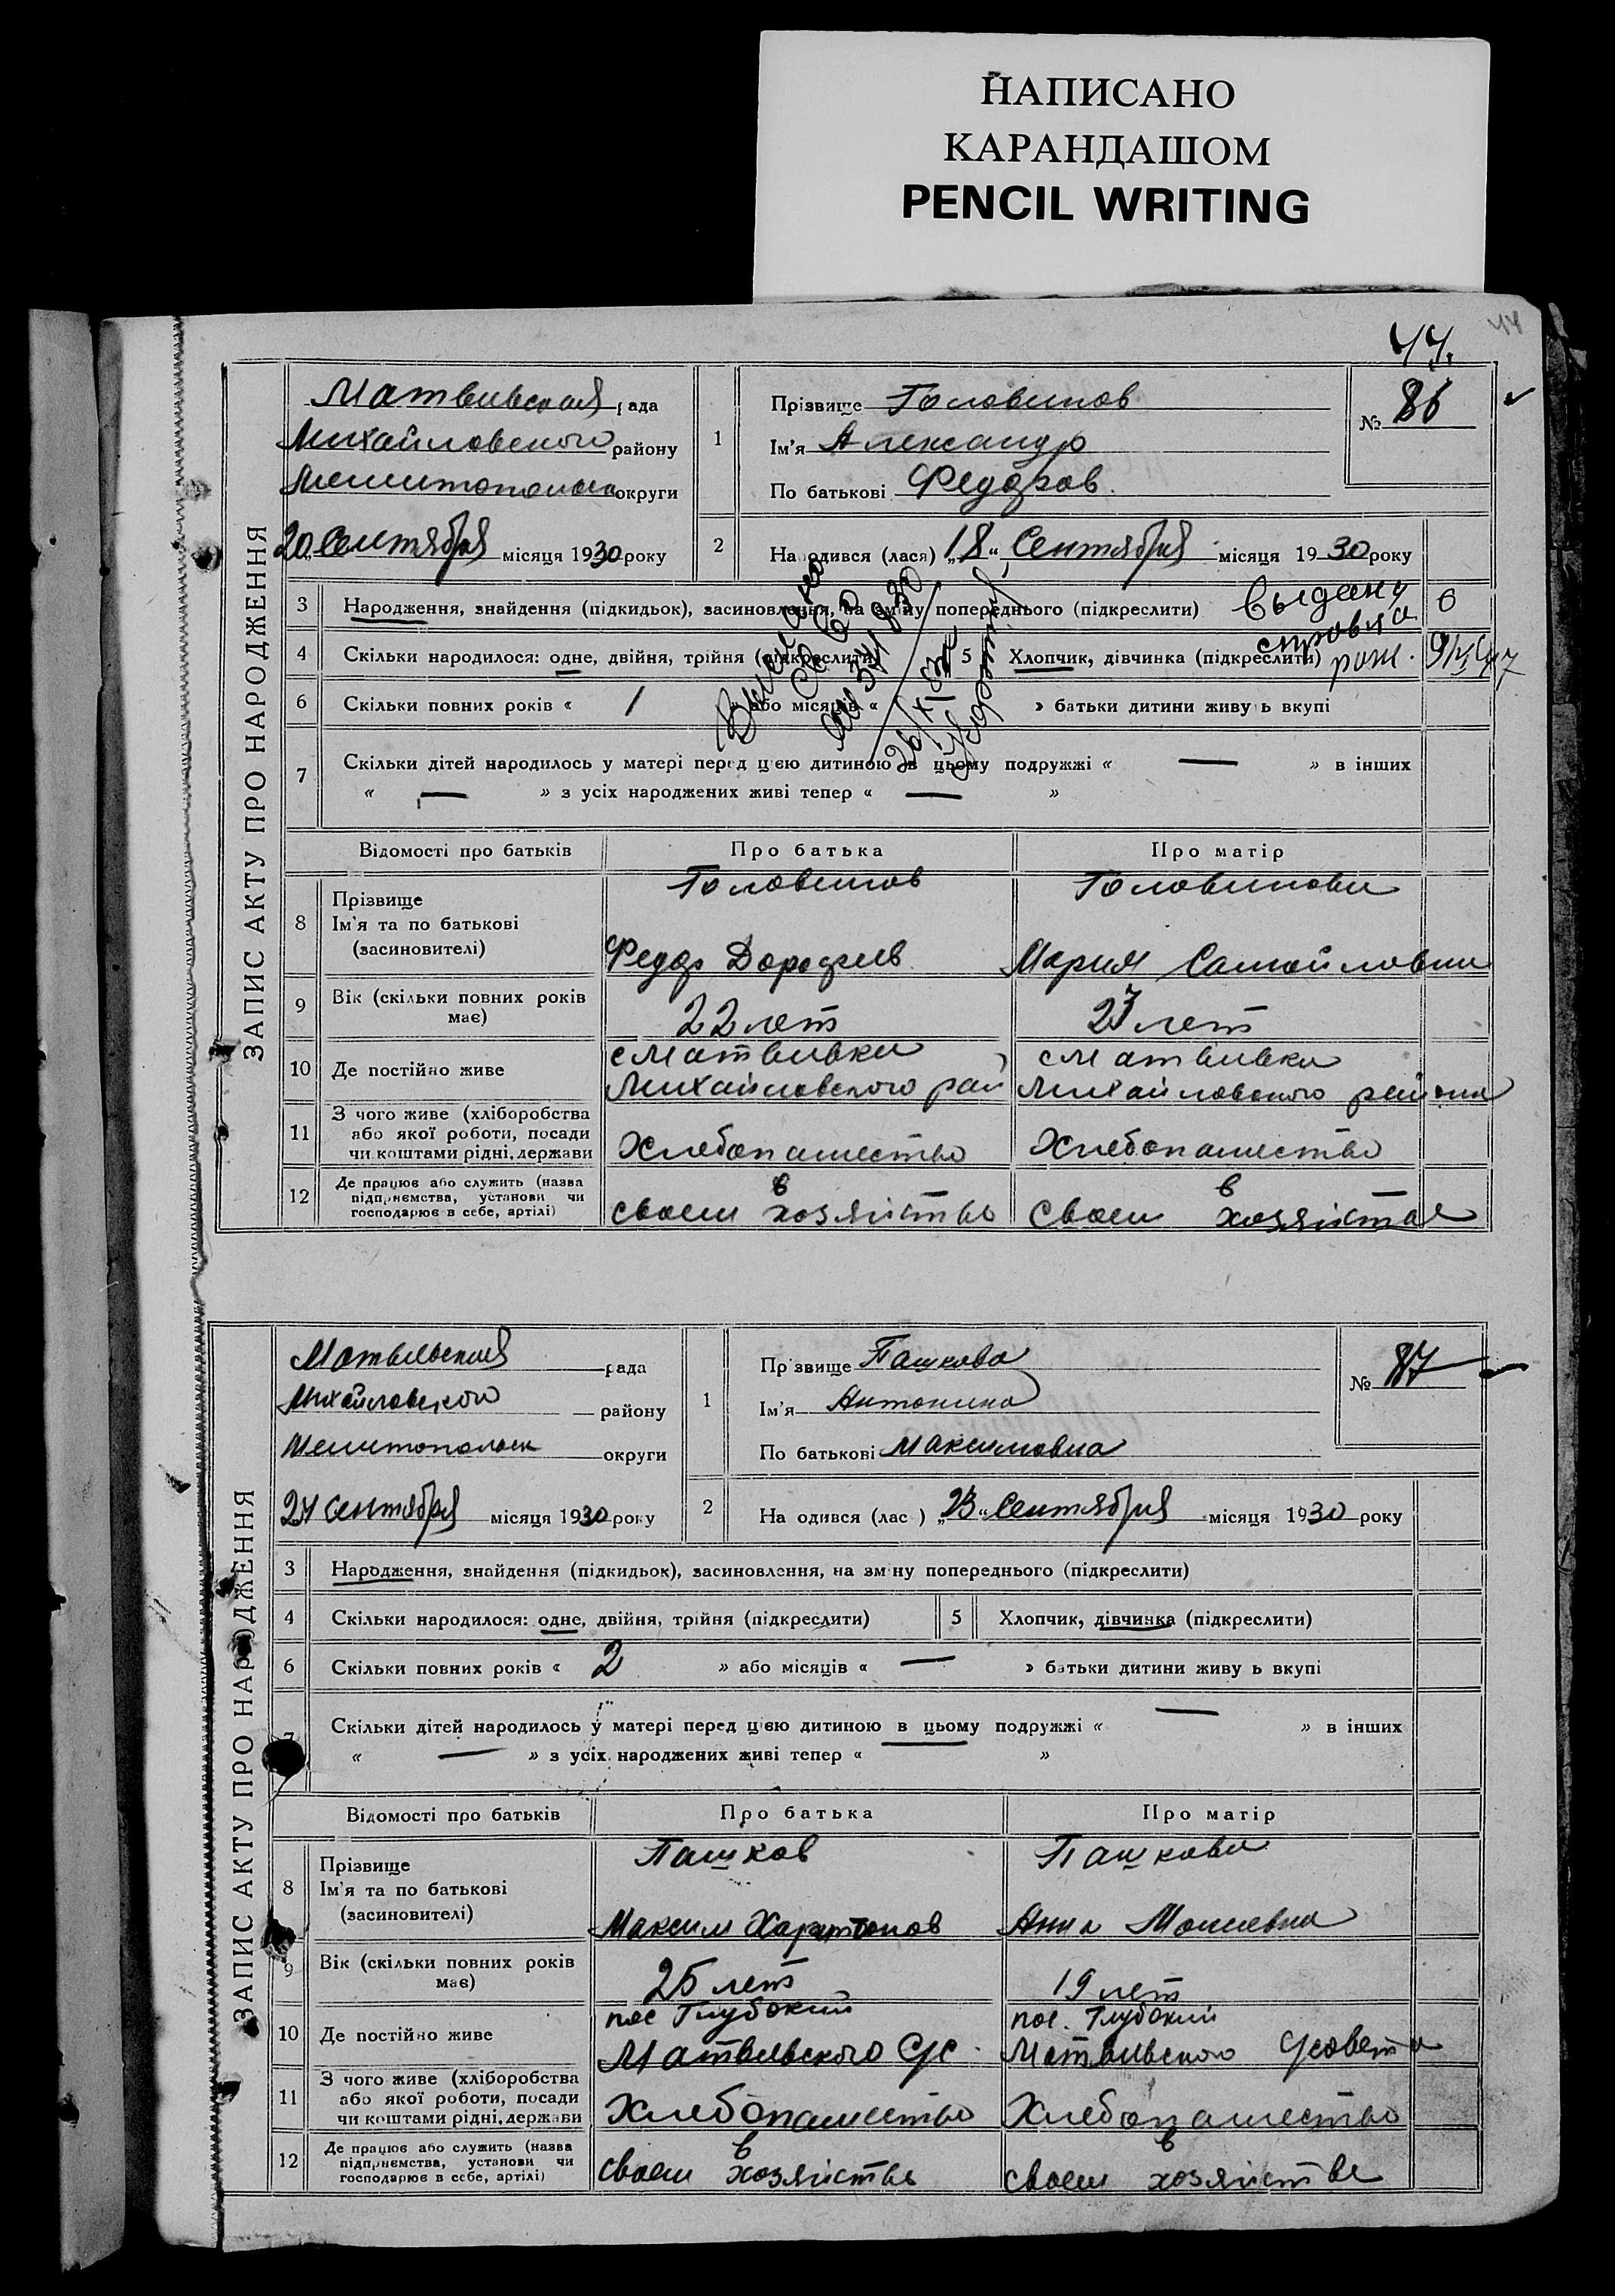 НАПИСАНО
КАРАНДАШОМ
PENCIL WRITING
44
44.
ЗАПИС АКТУ ПРО НАРОДЖЕННЯ
Матвивская рада
Михайловского району
Мелитопольск округи
20 Сентября місяця 1930 року
1 Прізвище Головинов
Ім'я Александр
По батькові Федоров
№ 86
2 На одився (лася) „18“ Сентября місяця 1930 року
3 Народження, знайдення (підкидьок), засиновлення, на зміну попереднього (підкреслити)
Выдана
справка
рож.
4 Скільки народилося: одне, двійня, трійня (підкреслити)
5 Хлопчик, дівчинка (підкреслити)
6 Скільки повних років « 1 або місяців « » батьки дитини живу ь вкупі
7 Скільки дітей народилось у матері перед цією дитиною в цьому подружжі « — » в інших
« — » з усіх народжених живі тепер « — »
Відомості про батьків Про батька Про матір
8 Прізвище
Ім'я та по батькові
(засиновителі)
Головинов
Федор
Головинова
Мария Самойловна
9 Вік (скільки повних років
має)
22 лет
10 Де постійно живе
с Матвивка
Михайловского рай
с Матвивка
Михайловского района
11 З чого живе (хліборобства
або якої роботи, посади
чи коштами рідні, держави
Хлебопашество
Хлебопашество
12 Де працює або служить (назва
підприємства, установи чи
господарює в себе, артілі)
в
своем хозяйстве
в
своем хозяйстве
ЗАПИС АКТУ ПРО НАРОДЖЕННЯ
Матвивская рада
Михайловского району
Мелитопольск округи
24 сентября місяця 1930 року
1 Пр звище Пашкова
Ім'я Антонина
По батькові Максимовна
№ 87
2 На одився (лас ) „23“ Сентября місяця 1930 року
3 Народження, знайдення (підкидьок), засиновлення, на зм ну попереднього (підкреслити)
4 Скільки народилося: одне, двійня, трійня (підкреслити)
5 Хлопчик, дівчинка (підкреслити)
6 Скільки повних років « 2 » або місяців « — » батьки дитини живу ь вкупі
7 Скільки дітей народилось у матері перед цією дитиною в цьому подружжі « — » в інших
« — » з усіх народжених живі тепер « »
Відомості про батьків Про батька Про матір
8 Прізвище
Ім'я та по батькові
(засиновителі)
Пашков
Максим Харитонов
Пашкова
Анна Моисевна
9 Вік (скільки повних років
має)
25 лет
19 лет
10 Де постійно живе
пос Глубокий
Матвивского С/с
пос. Глубокий
Матвивского С/совета
11 З чого живе (хліборобства
або якої роботи, посади
чи коштами рідні, держави
Хлебопашество
Хлебопашество
12 Де працює або служить (назва
підприємства, установи чи
господарює в себе, артілі)
в
своем хозяйстве
в
своем хозяйстве